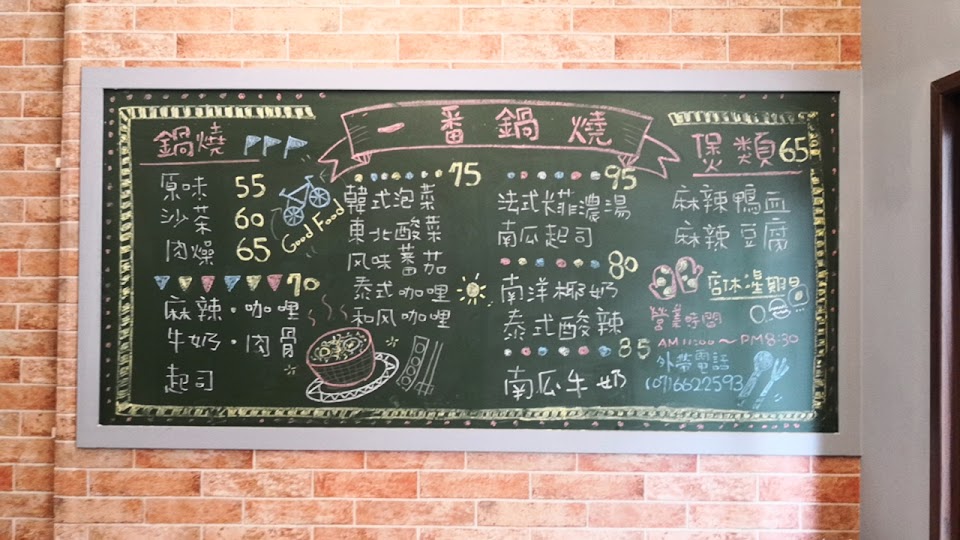 一番鍋燒
鍋燒
原味 55
沙茶 60
肉燥 65
70
麻辣·咖哩
牛奶·肉骨
起司
Good Food
75
韓式泡菜
東北酸菜
风味蕃茄
泰式咖哩
和风咖哩
95
法式米菲濃湯
南瓜起司
80
南洋椰奶
泰式酸辣
85
南瓜牛奶
煲類 65
麻辣鴨血
麻辣豆腐
店休星期日
營業時間
AM11:00～PM8:30
外帶電話
(07)6622593